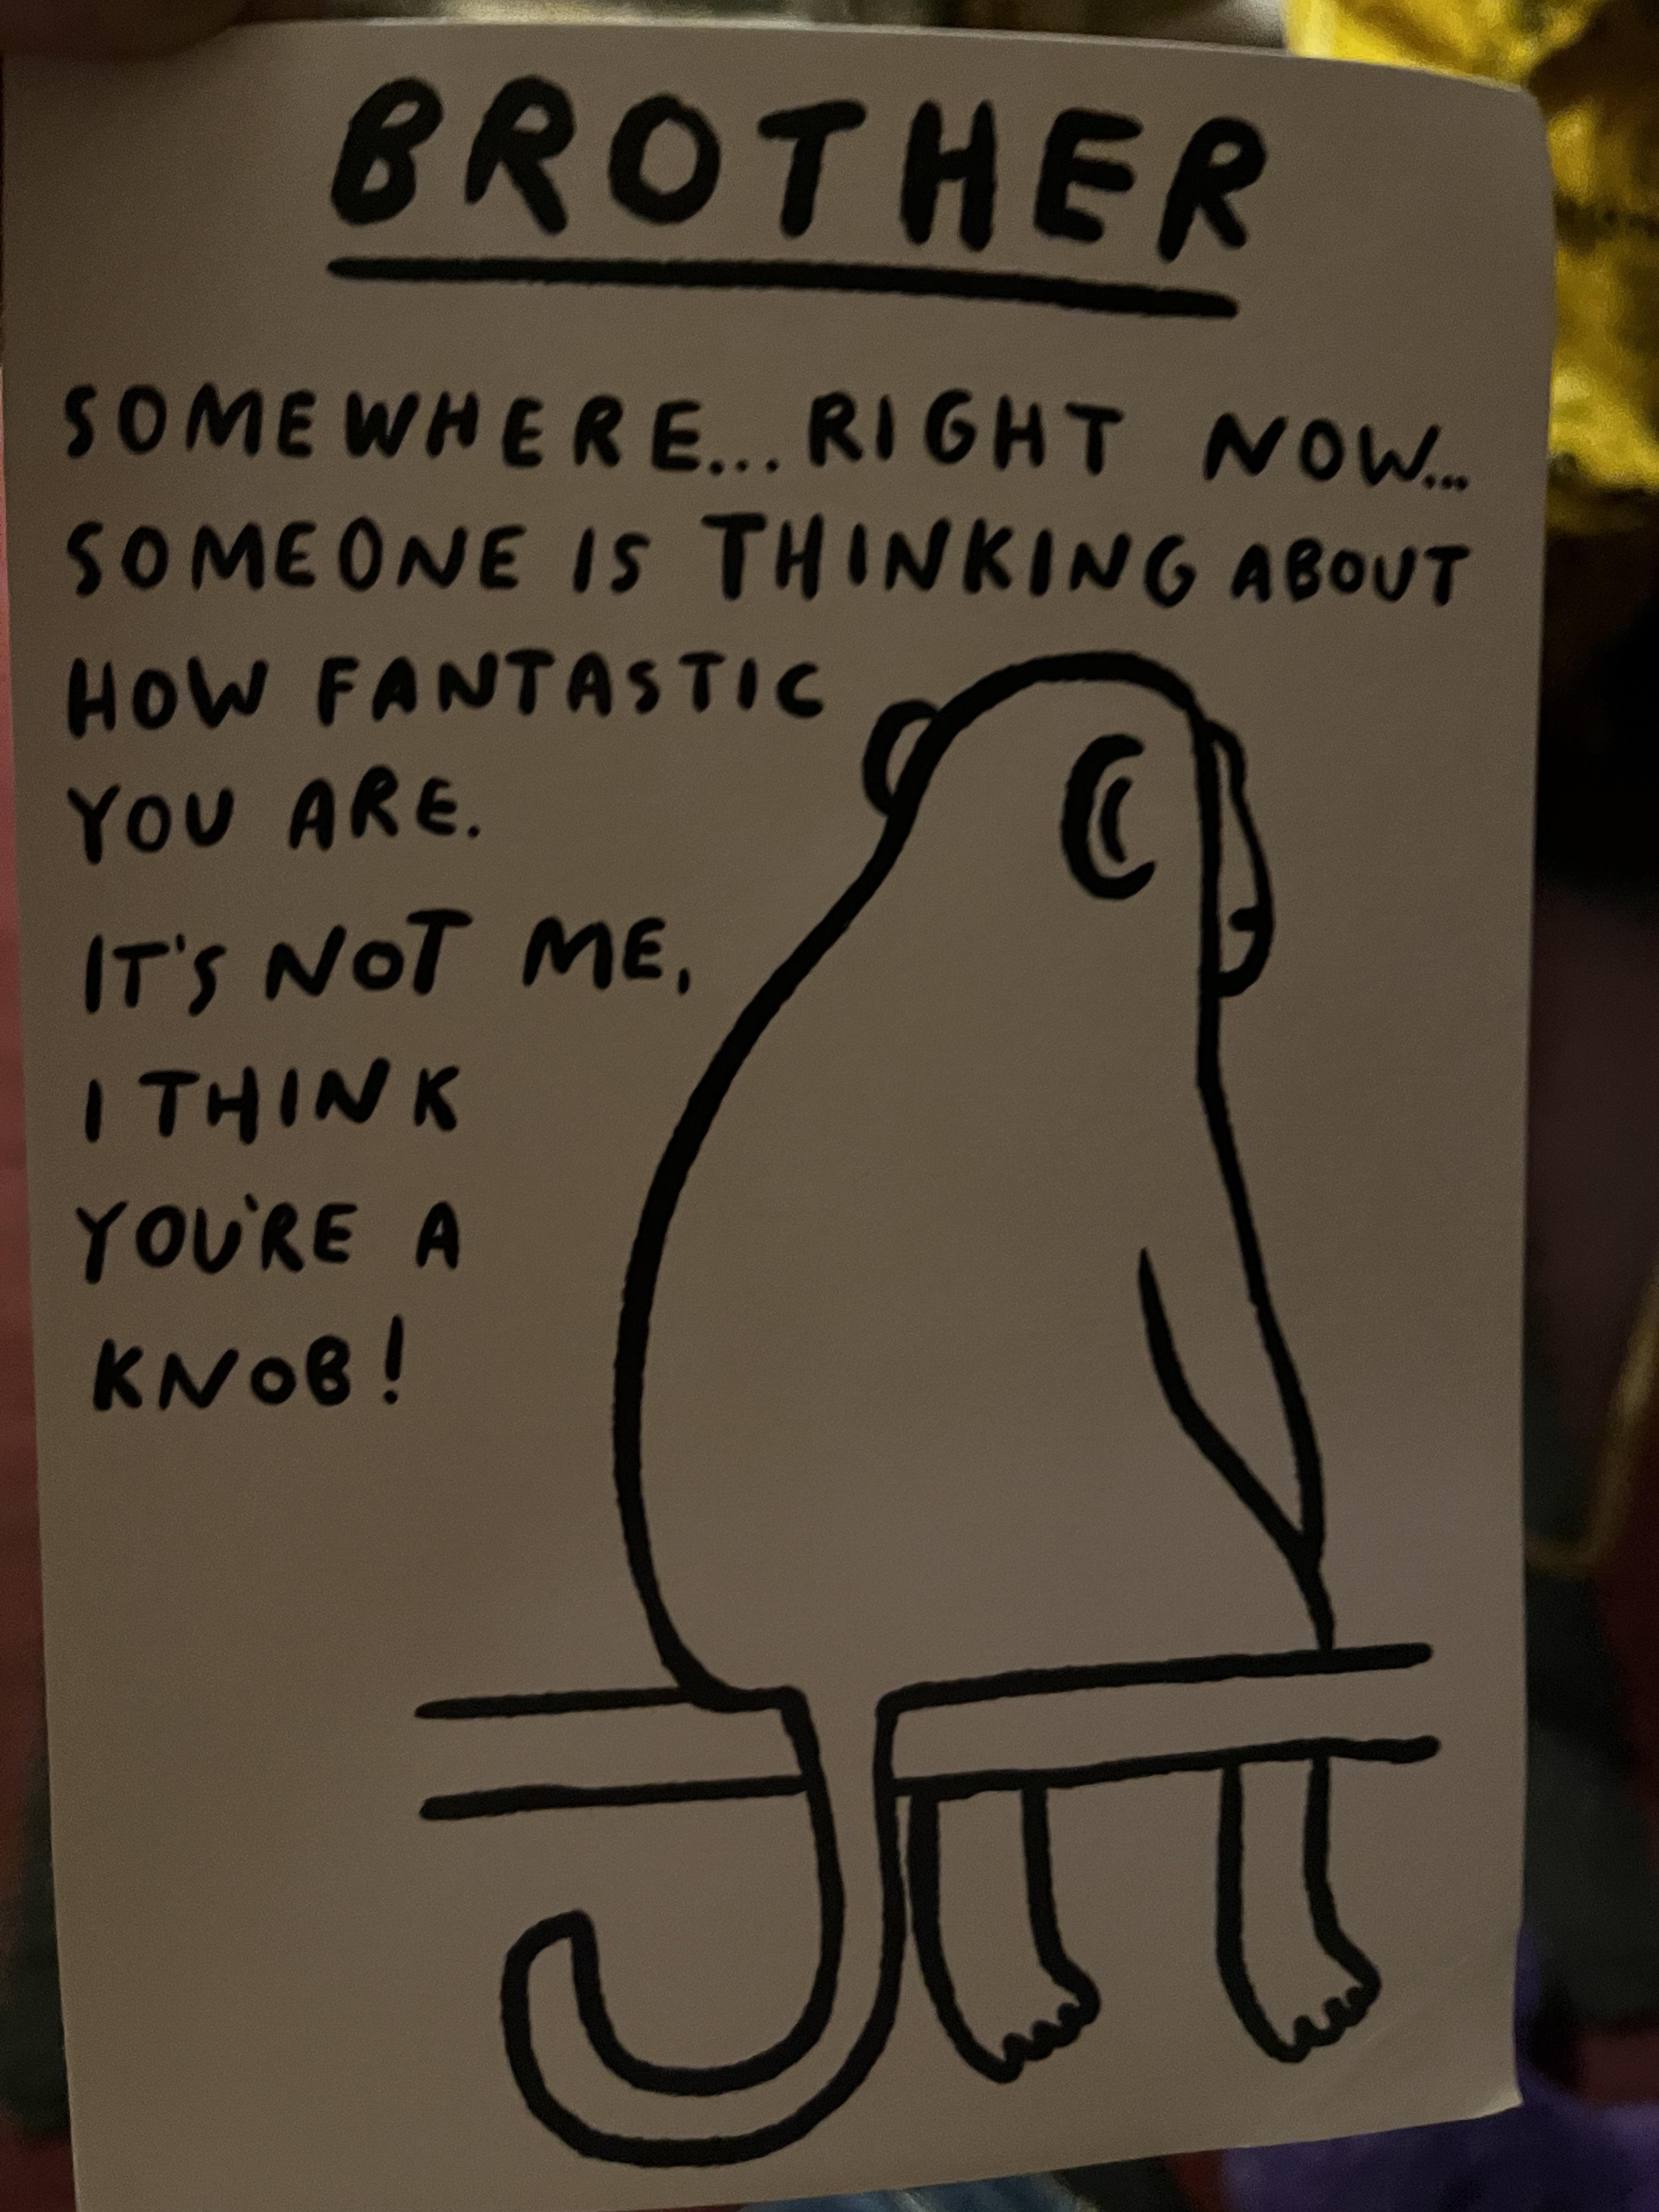 BROTHER
SOMEWHERE... RIGHT NOW...
SOMEONE IS THINKING ABOUT
HOW FANTASTIC
YOU ARE.
IT'S NOT ME,
I THINK
YOU'RE A
KNOB!